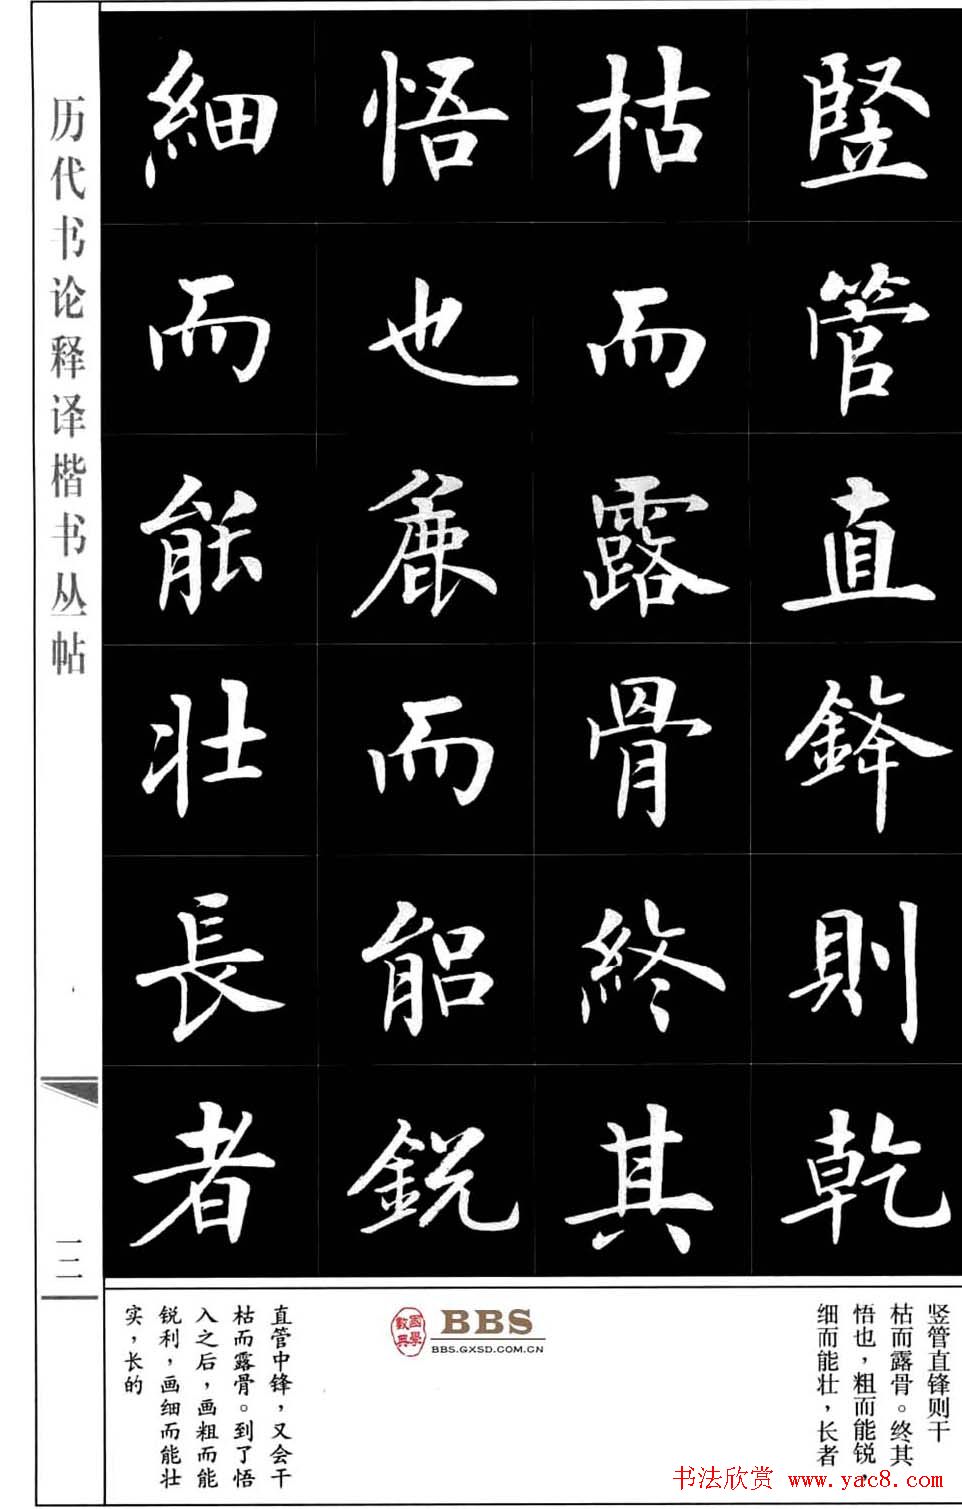 豎管直鋒則乾
枯而露骨終其
悟也麁而能銳
細而能壯長者
竖管直锋则干
枯而露骨。终其
悟也，粗而能锐，
细而能壮，长者
直管中锋，又会干
枯而露骨。到了悟
入之后，画粗而能
锐利，画细而能壮
实，长的
历代书论释译楷书丛帖
一二
國學數典
BBS
BBS.GXSD.COM.CN
书法欣赏 www.yac8.com